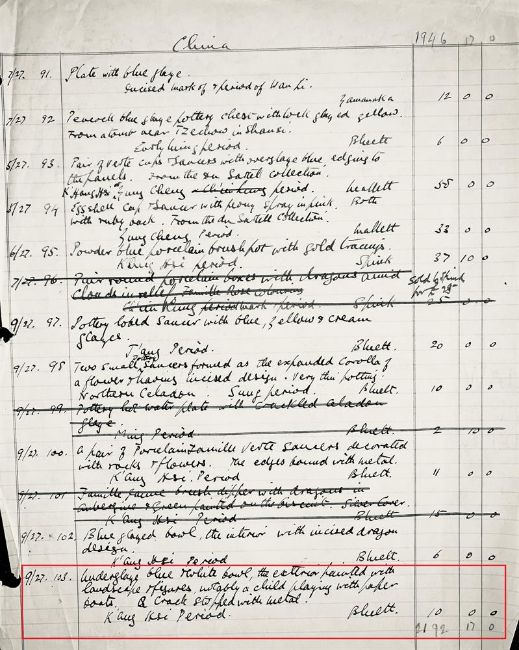 China
1946 17 0
7/27. 91. Plate with blue glaze.
Incised mark of & period of Wan Li.
Yamanaka 12 0 0
7/27 92 Peacock blue glaze pottery chest with lock glazed yellow.
From a tomb near Tzechow in Shansi.
Early Ming period. Bluett 6 0 0
5/27. 93. Pair of verte cups & Saucers with overglaze blue, edging to
the panels. From the du Sartell collection.
K'ang Hsi Yung Cheng period. Mallett 55 0 0
5/27 94 Eggshell Cup & Saucer with peony spray in pink. Both
with ruby back. From the du Sartell Collection.
Yung Cheng Period. Mallett 33 0 0
6/27. 95. Powder blue porcelain brushpot with gold tracings.
K'ang Hsi period. Spink 37 10 0
7/27. 96. Pair round porcelain boxes with dragons amid
Clouds in relief, Famille Rose colours
Ch'ien Lung period mark & period. Spink 25 0 0
Sold to Spink
for £
9/27. 97. Pottery lobed Saucer with blue, yellow & cream
glazes.
T'ang Period. Bluett. 20 0 0
9/27. 98 Two small Saucers formed as the expanded Corolla of
a flower & having incised design. Very thin potting.
Northern Celadon Sung period. Bluett. 10 0 0
9/27. 99. Pottery hot water plate with Crackled celadon
glaze.
Ming Period Bluett. 2 10 0
9/27. 100. A pair of Porcelain Famille Verte Saucers decorated
with rocks & flowers. The edges bound with metal.
K'ang Hsi Period Bluett 11 0 0
9/27. 101 Famille Jaune brush dipper with dragons in
Aubergine & Green painted on the biscuit. Silver Cover.
K'ang Hsi Period Bluett 15 0 0
9/27. 102 Blue glazed bowl, the interior with incised dragon
design.
K'ang Hsi Period Bluett. 6 0 0
9/27. 103. Underglaze blue & white bowl, the exterior painted with
landscape & figures, notably a child playing with paper
boats. Crack stopped with metal.
K'ang Hsi Period. Bluett. 10 0 0
2192 17 0